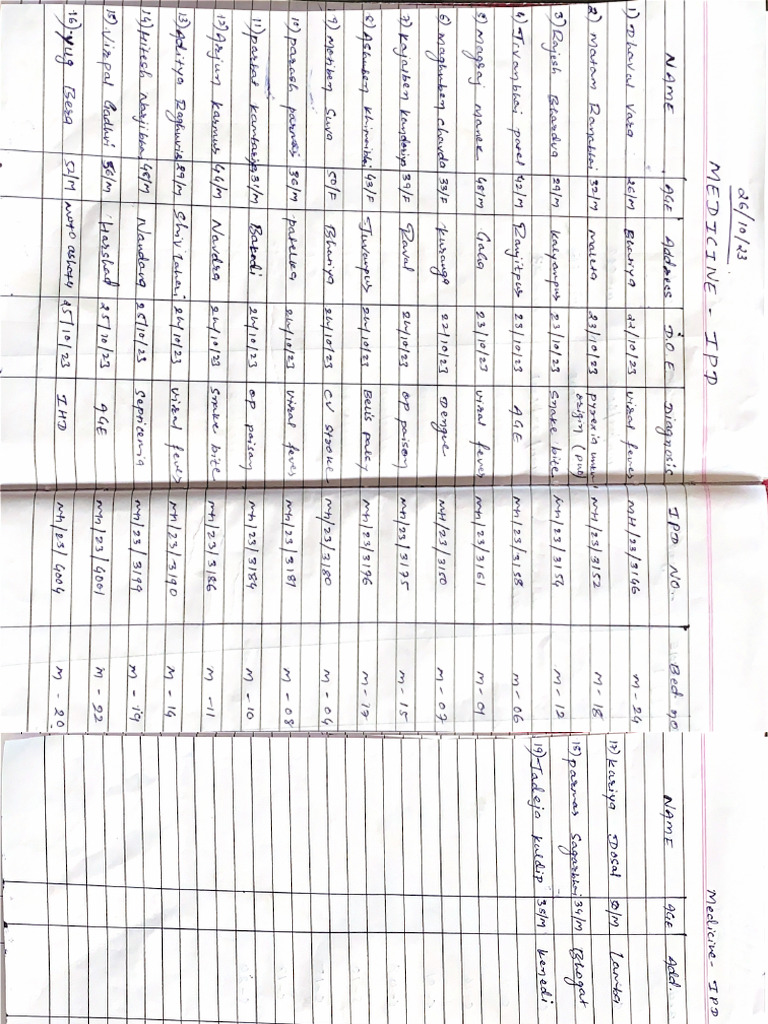 26/10/23
MEDICINE - IPD
NAME AGE Address D.O.E Diagnosis IPD NO. Bed no
1) Dhaval Vara 26/M Bhariya 22/10/23 viral fever MH/23/3146 M-24
2) Matam Ranabhai 32/M maleta 23/10/23 pyrexia unkn origin (PUO) MH/23/3152 M-18
3) Rajesh Bhardva 29/M Kalyanpur 23/10/23 Snake bite MH/23/3154 M-12
4) Jivanbhai patel 42/M Ranjitpur 23/10/23 AGE MH/23/3158 M-06
5) Magraj manek 48/M Gala 23/10/23 viral fever MH/23/3161 M-01
6) maghuben chavda 33/F Kuranga 22/10/23 Dengue MH/23/3160 M-07
7) Kajalben Kandoriya 39/F Raval 24/10/23 OP poison MH/23/3175 M-15
8) Ashuben Khimabhai 43/F Juvanpur 24/10/23 Bells palsy MH/23/3176 M-17
9) Motiben Suva 50/F Bhariya 24/10/23 CV stroke MH/23/3180 M-04
10) parash parmar 30/M patelka 24/10/23 viral fever MH/23/3181 M-08
11) parbat kambariya 31/M Bakodi 24/10/23 OP poison MH/23/3184 M-10
12) Arjun Karmur 44/M Navdra 24/10/23 Snake bite MH/23/3186 M-11
13) Aditya Raghuvir 29/M Shiv 24/10/23 viral fever MH/23/3190 M-14
14) Hitesh Narjibhai 48/M Nandana 25/10/23 Septicemia MH/23/3199 M-19
15) Virpal Gadhvi 36/M Harshad 25/10/23 AGE MH/23/4001 M-22
16) yug Bera 52/M 25/10/23 IHD MH/23/4004 M-20
Medicine - IPD
NAME AGE Add.
17) Kariya Dosal /M Lamba
18) parmar Sagarbhai 34/M Bhogat
19) Jadeja Kuldip 35/M Kenedi